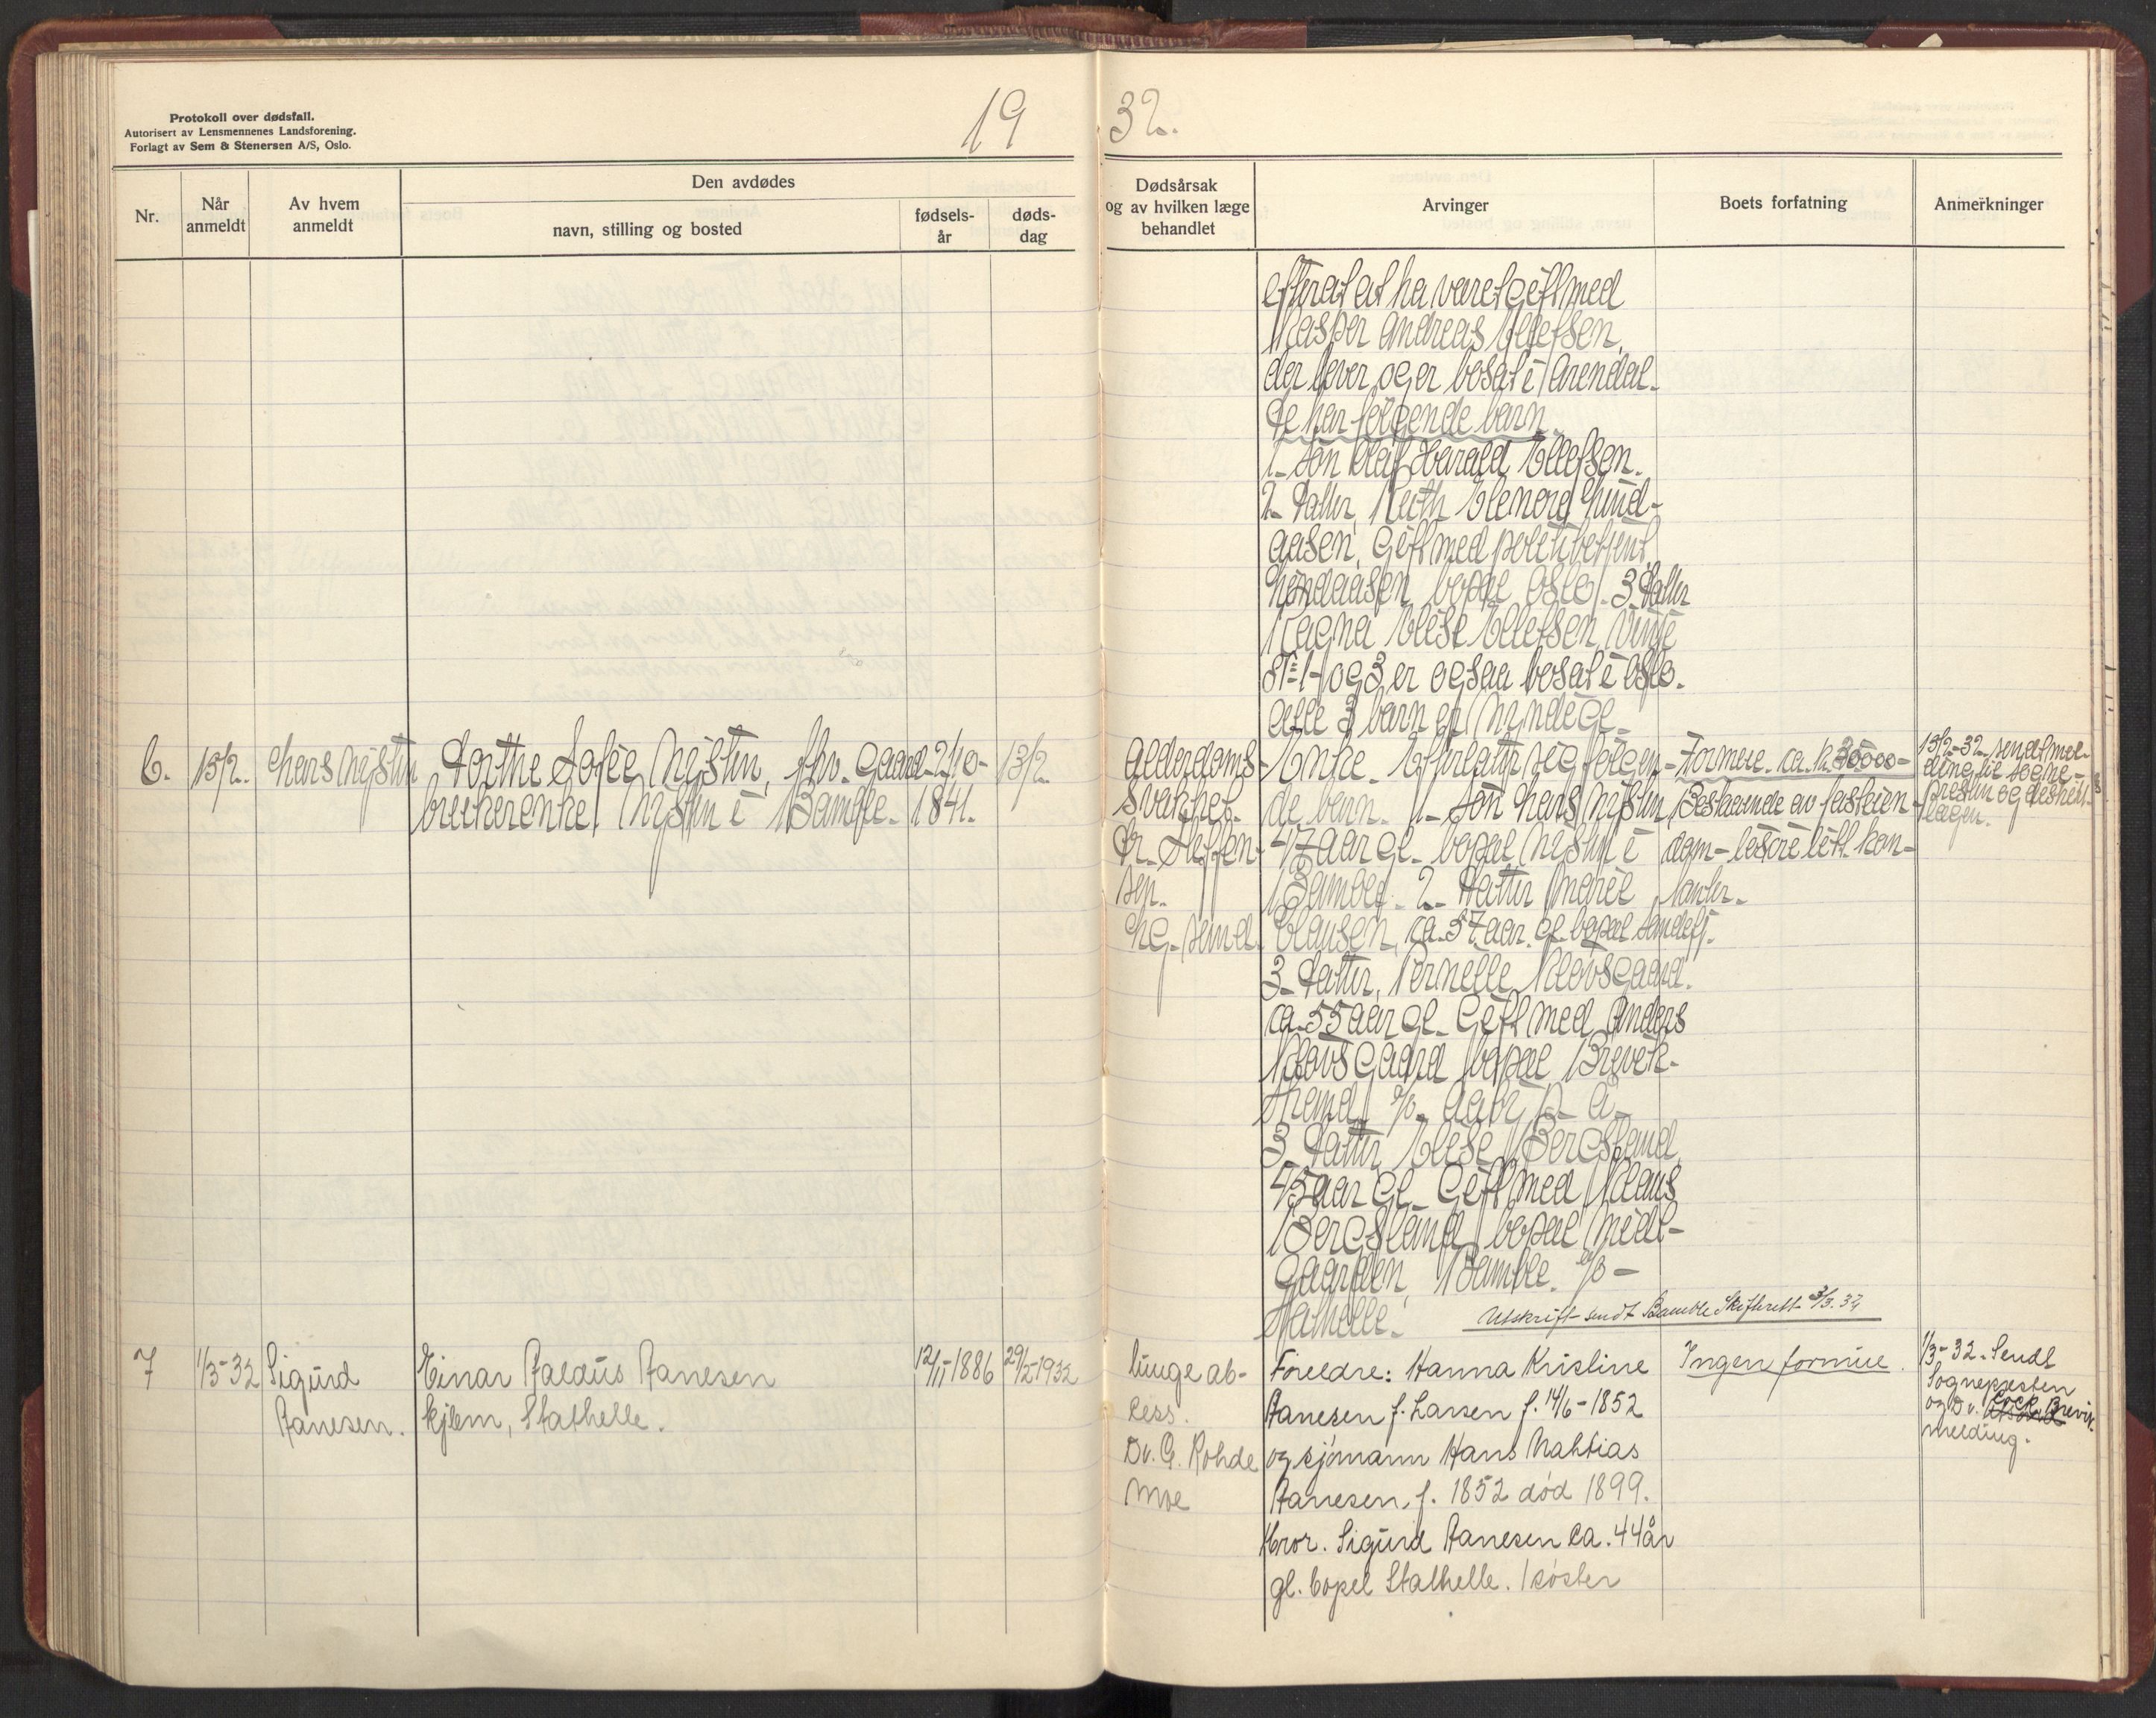 19 32.
Protokoll over dødsfall.
Autorisert av Lensmennenes Landsforening.
Forlagt av Sem & Stenersen A/S, Oslo.
Nr.
Når anmeldt
Av hvem anmeldt
Den avdødes
navn, stilling og bosted
fødsels-år
døds-dag
Dødsårsak og av hvilken læge behandlet
Arvinger
Boets forfatning
Anmerkninger
efterat at ha været gift med
Kasper Andreas Ellefsen,
der lever og er bosat i Arendal.
De har følgende barn
1. Søn Olaf Harald Ellefsen.
2. Datter, Ruth Elenore
gift med politibetjent
bopæl Oslo. 3 Datter
Ragna Elise Ellefsen,
No 1 og 3 er ogsaa bosat i Oslo.
alle 3 barn er myndige.
6.
15/2.
Hans
Dorthe Sofie fhv. gaard-
brukerenke, i Bamble.
2/10-
1841.
13/2.
Alderdoms-
svakhet.
Dr. Steffen-
sen.
Enke. Efterlater sig følgen-
de barn. 1. Søn Hans
47 aar gl. bopæl i
Bamble. 2. Datter Marie
Clausen, ca. 57 aar gl. bopæl Sandefj.
3. Datter, Pernelle Kløvsgaard.
ca. 55 aar gl. gift med Anders
Kløvsgaard bopæl Brevik-
strand
3. Datter Elise Bergsland
45 aar gl. gift med Klaus
Bergsland bopæl Midt-
gaarden, Bamble.
Stathelle.
Formue. ca. kr. 30000-
Bestaaende av fasteien-
dom - løsøre litt kon-
tanter.
15/2-32 sendt mel-
ding til sogne-
presten og distrikts-
lægen.
Utskrift sendt Bamble Skifterett 3/3. 32
7
1/3-32
Sigurd
Aanesen.
Einar Aanesen
kjem, Stathelle.
12/11-1886
29/2-1932
Lunge ab-
cess.
Dr. G. Rohde
Moe
Foreldre: Hanna Kristine
Aanesen f. Larsen f. 14/6-1852
og sjømann Hans Mathias
Aanesen, f. 1852 død 1899.
Bror. Sigurd Aanesen ca. 44 år
gl. bopel Stathelle. 1 søster
Ingen formue.
1/3-32. Sendt
Sognepresten
og Dr. Cock Brevik
melding.